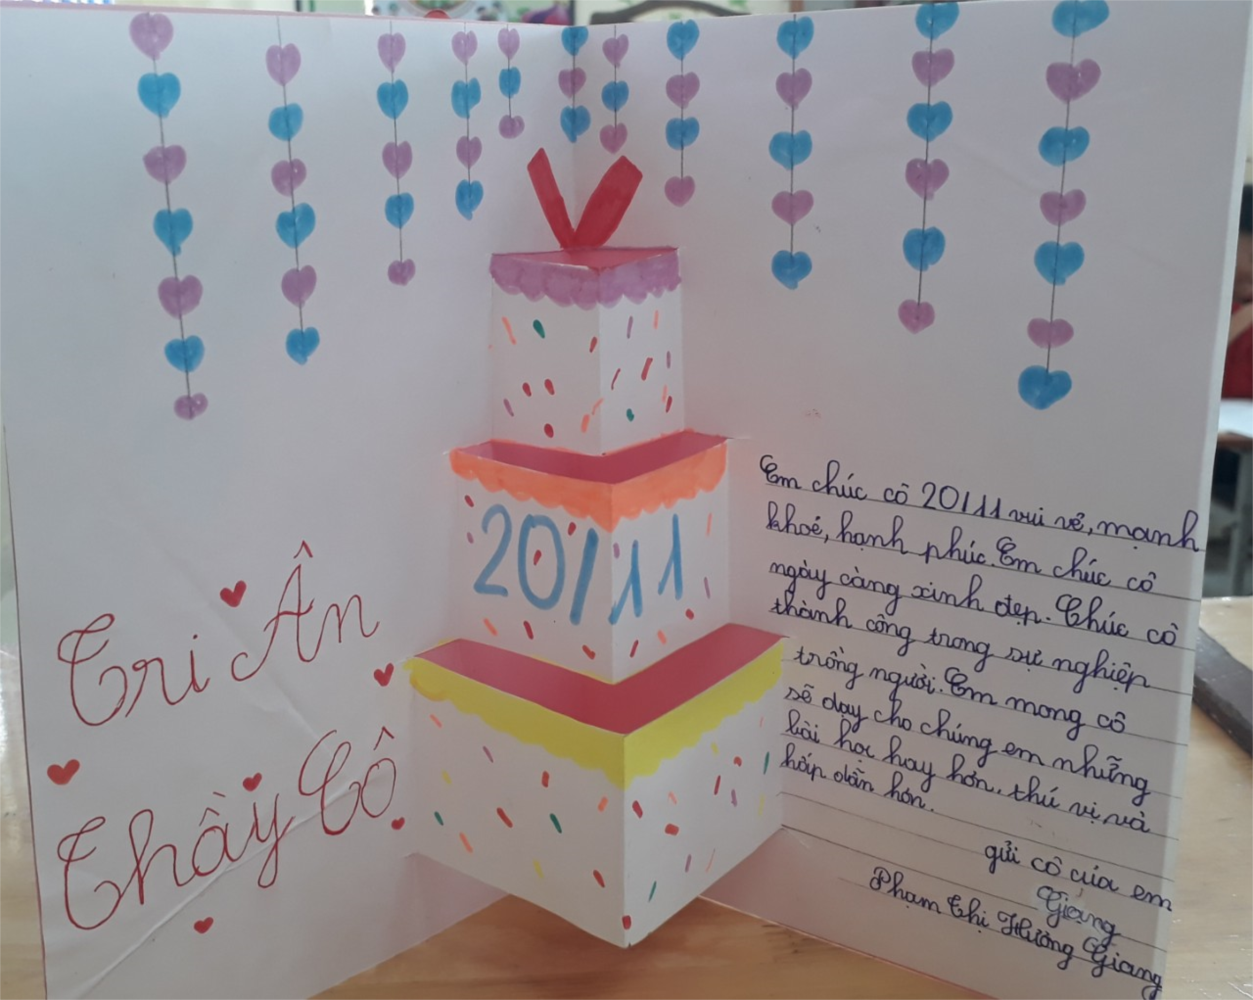 Tri Ân
Thầy Cô
20/11
Em chúc cô 20/11 vui vẻ, mạnh
khoẻ, hạnh phúc. Em chúc cô
ngày càng xinh đẹp. Chúc cô
thành công trong sự nghiệp
trồng người. Em mong cô
sẽ dạy cho chúng em những
bài học hay hơn, thú vị và
hấp dẫn hơn.
gửi cô của em
Giang
Phạm Thị Hương Giang